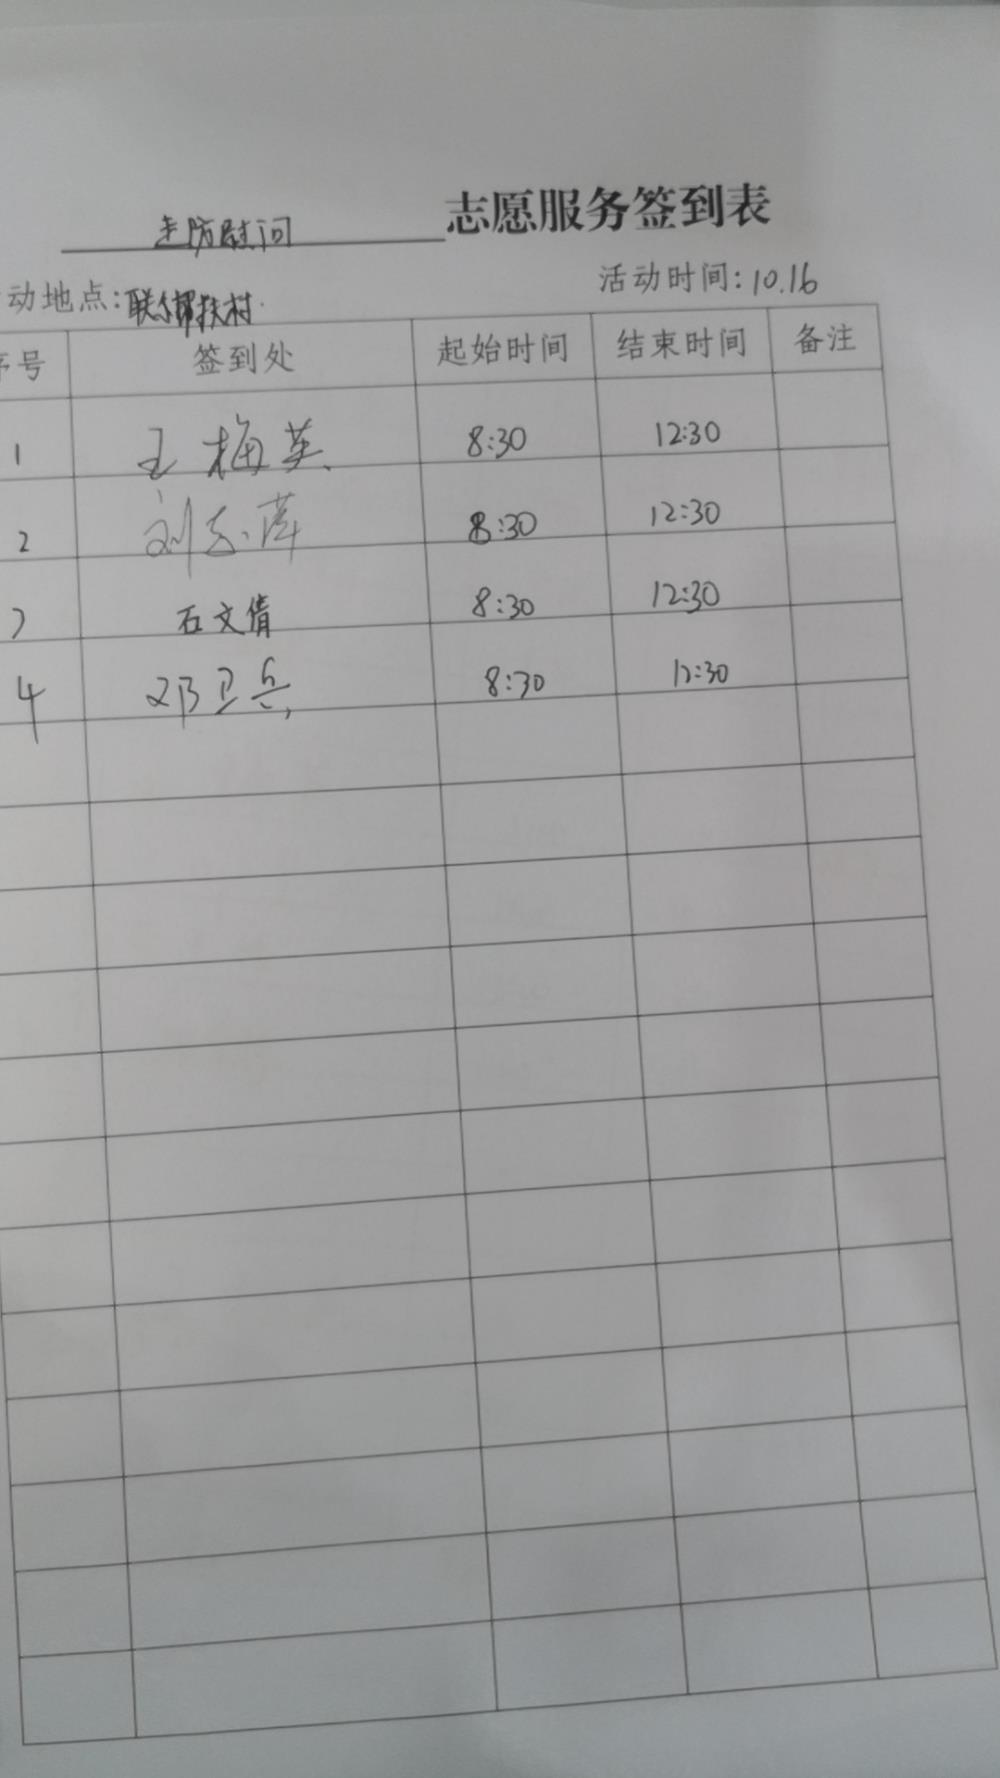 走访慰问 志愿服务签到表
动地点: 活动时间: 10.16
序号 签到处 起始时间 结束时间 备注
1 王梅英 8:30 12:30
2 刘志萍 8:30 12:30
3 石文倩 8:30 12:30
4 邓卫兵 8:30 12:30